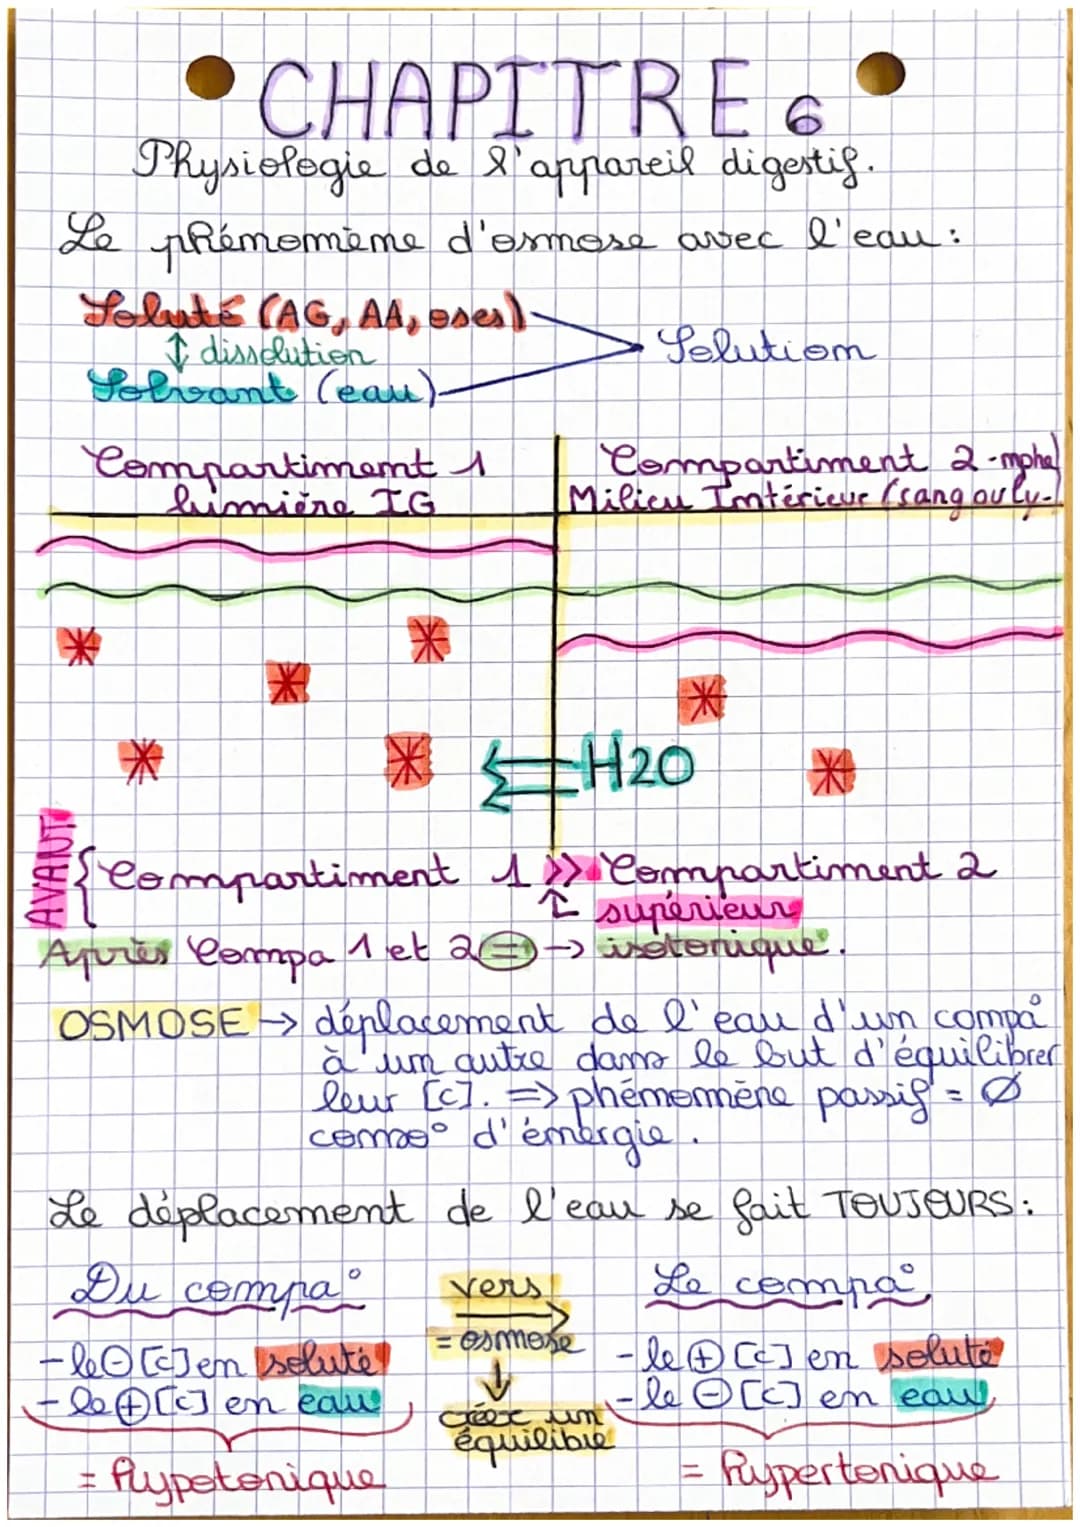 CHAPITRE 6
Physiologie de l'appareil digestif.
Le phénomème d'osmose avec l'eau :
Soluté (AG, AA, oses)
↕ dissolution
Solvant (eau)
Solution
Compartiment 1
lumière IG
Compartiment 2 -mphe)
Milieu Intérieur (sang ou ly-
H2O
AVANT
Compartiment 1 >> Compartiment 2
supérieur
Après Compa 1 et 2 = → isotonique.
OSMOSE → déplacement de l'eau d'un compa°
à un autre dans le but d'équilibrer
leur [c]. => phénomène passif = Ø
conso° d'énergie.
Le déplacement de l'eau se fait TOUJOURS :
Du compa°
- le ⊖ [c] en soluté
- le ⊕ [c] en eau
= hypotonique
vers
= osmose
créer un
équilibre
Le compa°
- le ⊕ [c] en soluté
- le ⊖ [c] en eau
= hypertonique